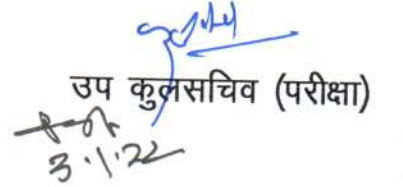 उप कुलसचिव (परीक्षा)
3.1.22